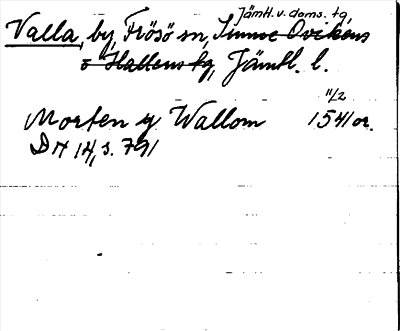 Jämtl. v. doms. tg
Valla, by, Frösö sn, Sunne Ovikens
o Hallens tg, Jämtl. l.
11/2
Morten y Wallom 1541 or.
DN 14, s. 791